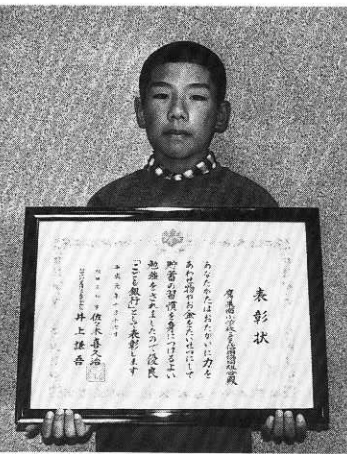 表彰状
あなたがたはおたがいに力を
あわせ物やお金をたいせつにして
貯蓄の習慣を身につけるよい
勉強をされましたので優良
「こども銀行」として表彰します
平成元年十月十七日
佐々木喜久治
井上謙吾